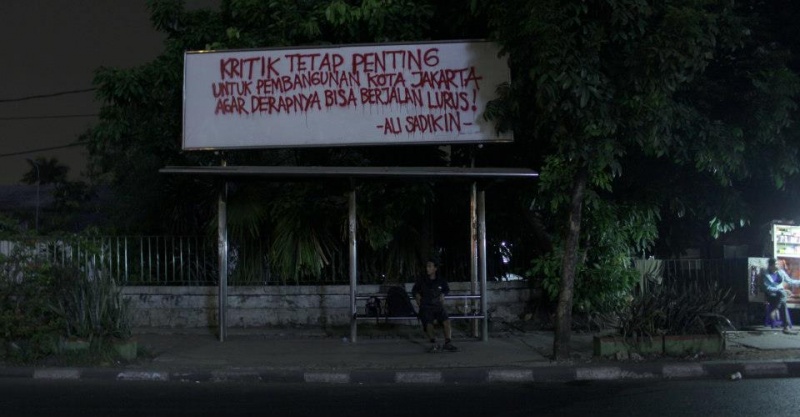 KRITIK TETAP PENTING
UNTUK PEMBANGUNAN KOTA JAKARTA
AGAR DERAPNYA BISA BERJALAN LURUS!
-ALI SADIKIN-